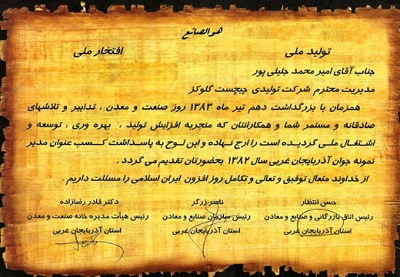 هوالصانع
تولید ملی
افتخار ملی
جناب آقای امیر محمد جلیلی پور
مدیریت محترم شرکت تولیدی چیچست گلوکز
همزمان با بزرگداشت دهم تیر ماه ۱۳۸۳ روز صنعت و معدن ، تدابیر و تلاشهای
صادقانه و مستمر شما و همکارانتان که منجربه افزایش تولید ، بهره وری ، توسعه و
اشتغال ملی گردیده است را ارج نهاده و این لوح به پاسداشت کسب عنوان مدیر
نمونه جوان آذربایجان غربی سال ۱۳۸۲ بحضورتان تقدیم می گردد .
از خداوند متعال توفیق و تعالی و تکامل روز افزون ایران اسلامی را مسئلت داریم .
حسن انتظار
رئیس اتاق بازرگانی و صنایع و معادن
استان آذربایجان غربی
ناصر زرگر
رئیس سازمان صنایع و معادن
استان آذربایجان غربی
دکتر قادر رضازاده
رئیس هیأت مدیره خانه صنعت و معدن
استان آذربایجان غربی